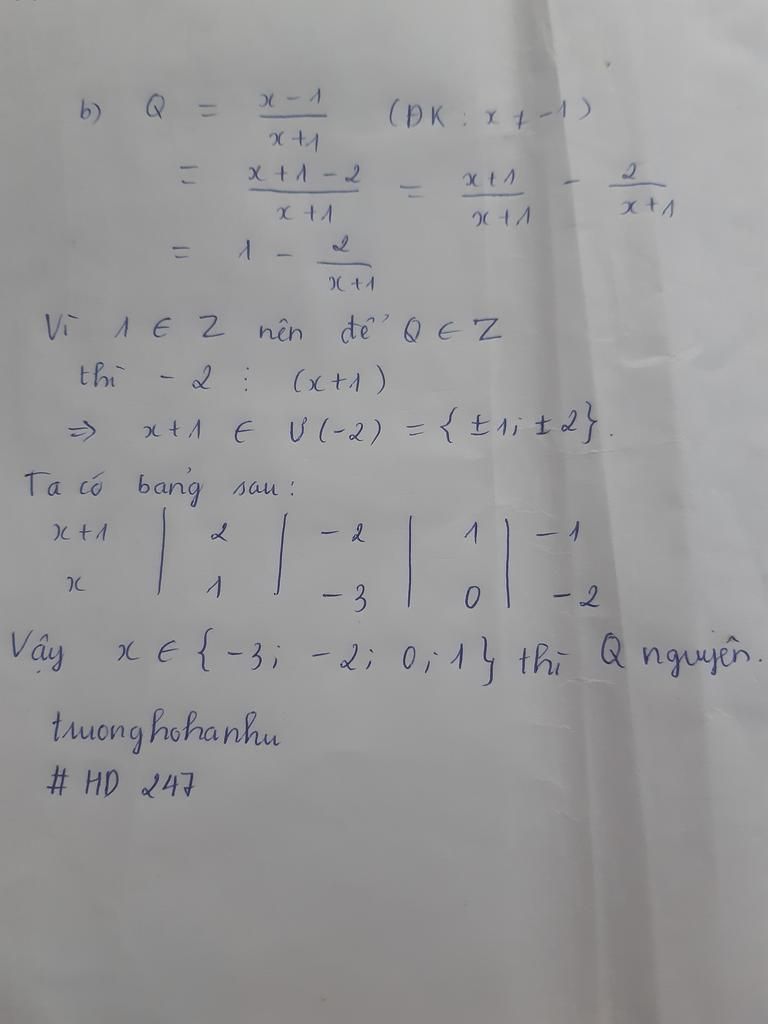 b) Q = \frac{x-1}{x+1} (ĐK: x ≠ -1)
= \frac{x+1-2}{x+1} = \frac{x+1}{x+1} - \frac{2}{x+1}
= 1 - \frac{2}{x+1}
Vì 1 ∈ Z nên để Q ∈ Z
thì -2 ⋮ (x+1)
⇒ x+1 ∈ Ư(-2) = {±1; ±2}.
Ta có bảng sau:
x+1 | 2 | -2 | 1 | -1
x | 1 | -3 | 0 | -2
Vậy x ∈ {-3; -2; 0; 1} thì Q nguyên.
truonghohanhu
# HD 247